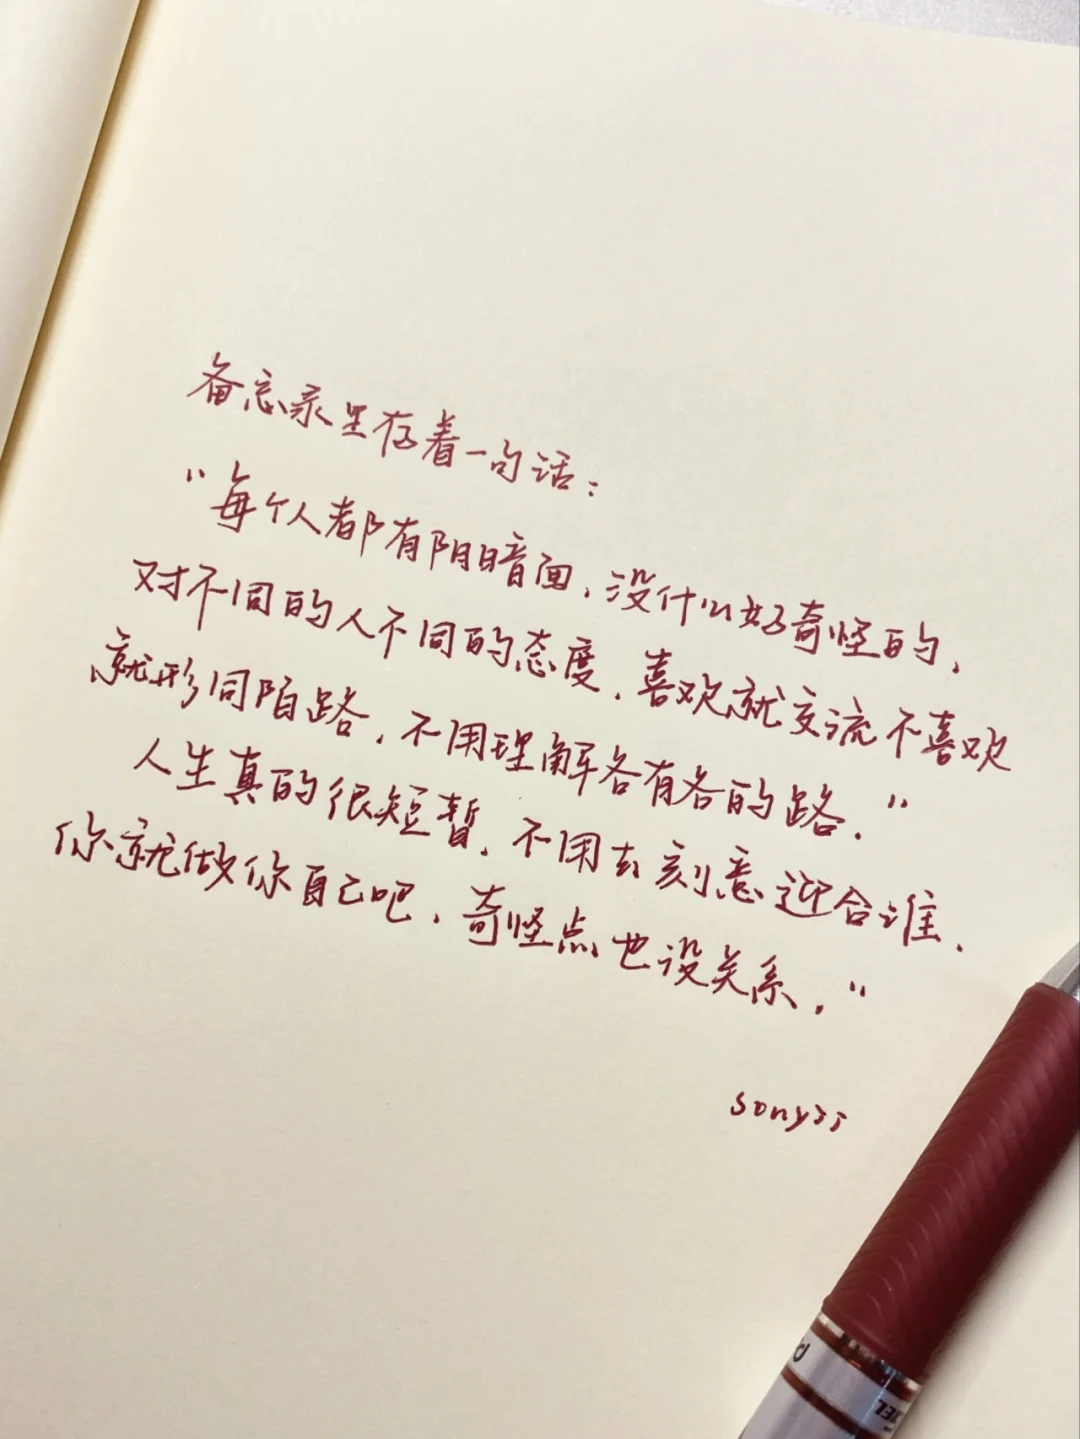 备忘录里存着一句话：
“每个人都有阴暗面，没什么好奇怪的，
对不同的人不同的态度，喜欢就交流不喜欢
就形同陌路，不用理解各有各的路。”
人生真的很短暂，不用去刻意迎合谁，
你就做你自己吧，奇怪点也没关系。”